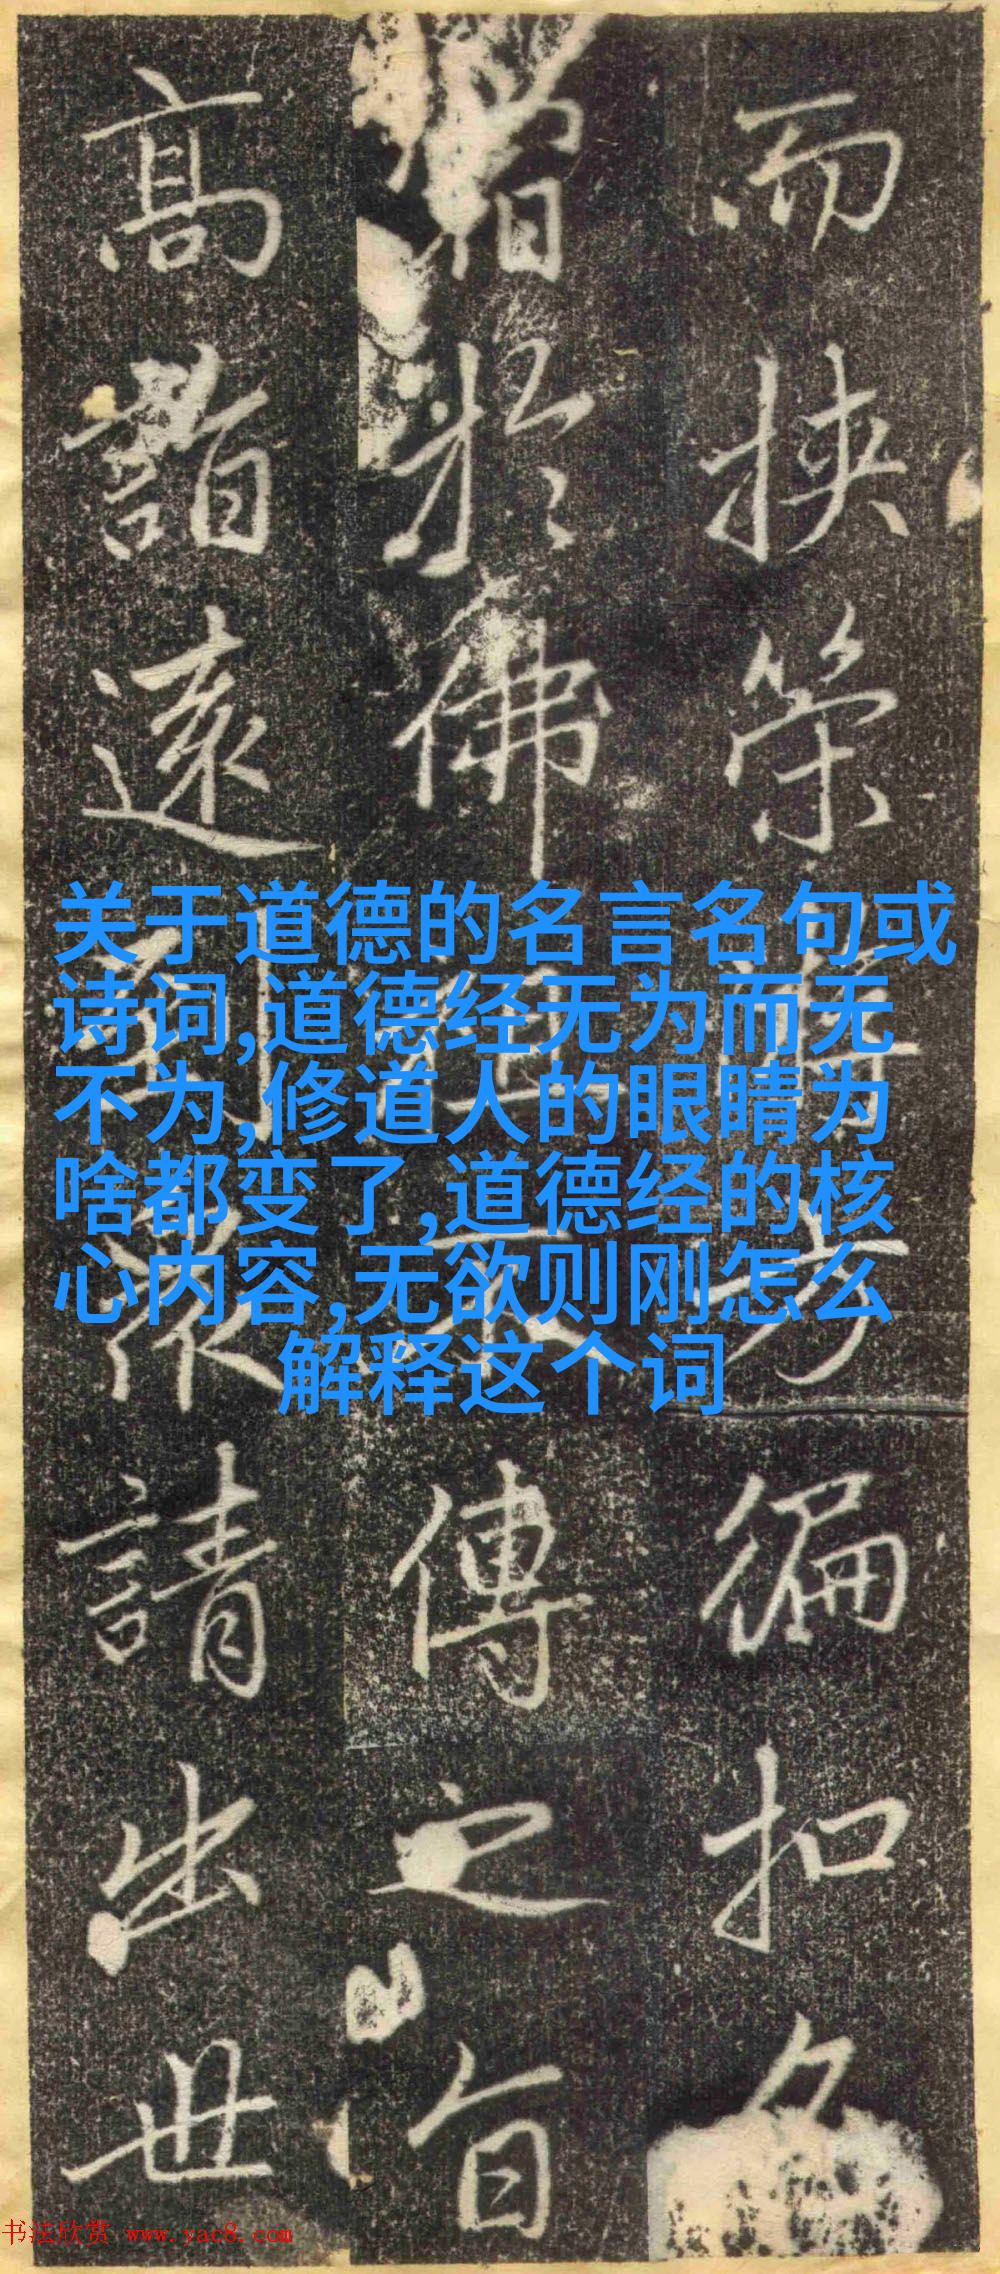 关于道德的名言名句或
诗词,道德经无为而无
不为,修道人的眼睛为
啥都变了,道德经的核
心内容,无欲则刚怎么
解释这个词
而挾策方徧扣
於佛傳之旨
高詣遠到衆請出世
书法欣赏 www.yac8.com